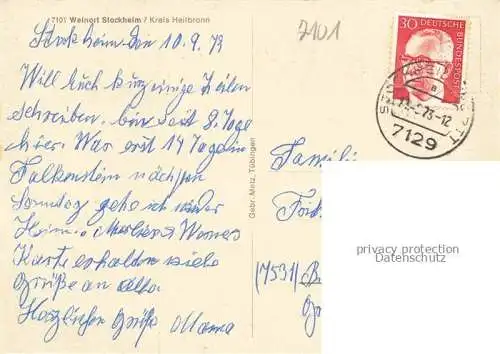 7101 Weinort Stockheim / Kreis Heilbronn
Stockheim den 10.9.73
Will Euch kurz einige Zeilen
schreiben. bin seit 8. Tage
hier. War erst 14 Tage in
Falkenstein nächsten
Sonntag gehe ich wieder
Heim.
Karte erhalten viele
Grüße an alle
Herzlicher Gruß Mama
Gebr. Metz, Tübingen
7101
30 DEUTSCHE
BUNDESPOST
73-12
7129
Familie
(7531)
privacy protection
Datenschutz